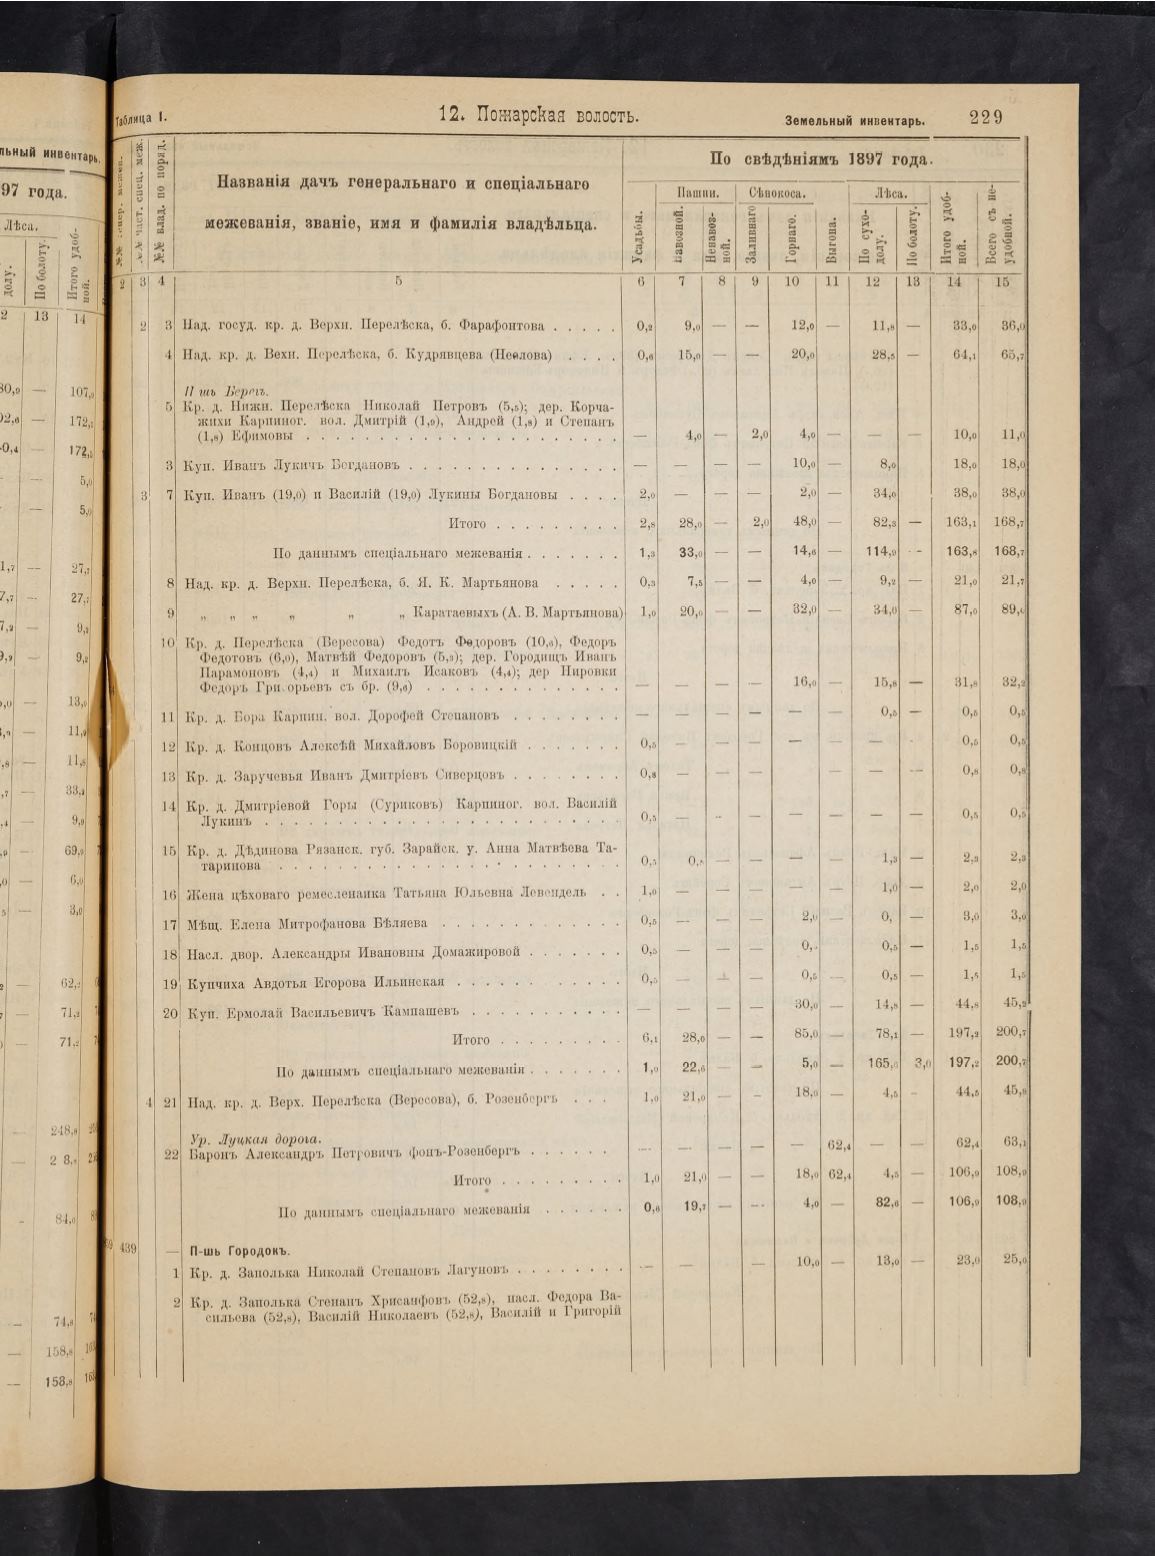 льный инвентарь.
97 года.
Лѣса.
долу.
По болоту.
Итого удоб-
ной.
2 13 14
30,9 — 107,9
92,6 — 172,5
0,4 — 172,5
5,0
— 5,0
1,7 — 27,7
7,7 — 27,7
7,2 — 9,2
9,2 — 9,2
13,0
11,9
11,8
33,4
9,9
69,9
6,0
3,0
62,2
71,2
71,2
248,8
84,0
— 74,8
— 158,8
— 158,8
Таблица I.
12. Пожарская волость.
Земельный инвентарь.
229
№№ влад. по поряд.
Названія дачъ генеральнаго и спеціальнаго
межеванія, званіе, имя и фамилія владѣльца.
По свѣдѣніямъ 1897 года.
Усадьбы.
Пашни.
Навозной.
Ненавоз-
ной.
Сѣнокоса.
Заливнаго
Горнаго.
Выгона.
Лѣса.
По сухо-
долу.
По болоту.
Итого удоб-
ной.
Всего съ не-
удобной.
2 3 4 5 6 7 8 9 10 11 12 13 14 15
2 3 Над. госуд. кр. д. Верхн. Перелѣска, б. Фарафонтова . . . . . 0,2 9,0 — — 12,0 — 11,8 — 33,0 36,0
4 Над. кр. д. Вехн. Перелѣска, б. Кудрявцева (Неелова) . . . . 0,6 15,0 — — 20,0 28,5 — 64,1 65,7
П шь Берегъ.
5 Кр. д. Нижн. Перелѣска Николай Петровъ (5,5); дер. Корча-
жихи Карпиног. вол. Дмитрій (1,9), Андрей (1,8) и Степанъ
(1,8) Ефимовы . . . . . . . . . . — 4,0 — 2,0 4,0 — — — 10,0 11,0
3 Куп. Иванъ Лукичъ Богдановъ . . . . . . . . . . — — — — 10,0 — 8,0 18,0 18,0
3 7 Куп. Иванъ (19,0) и Василій (19,0) Лукины Богдановы . . . . 2,0 — — — 2,0 — 34,0 38,0 38,0
Итого . . . . . . . . . 2,8 28,0 — 2,0 48,0 — 82,3 — 163,1 168,7
По даннымъ спеціальнаго межеванія . . . . . . . 1,3 33,0 — — 14,6 — 114,9 - - 163,8 168,7
8 Над. кр. д. Верхн. Перелѣска, б. Я. К. Мартьянова . . . . . 0,3 7,5 — — 4,0 — 9,2 — 21,0 21,7
9 „ „ „ „ „ „ Каратаевыхъ (А. В. Мартьянова) 1,0 20,0 — — 32,0 — 34,0 — 87,0
10 Кр. д. Перелѣска (Вересова) Федотъ Федоровъ (10,6), Федоръ
Федотовъ (6,0), Матвѣй Федоровъ (5,3); дер. Городищъ Иванъ
Парамоновъ (4,4) и Михаилъ Исаковъ (4,4); дер Пировки
Федоръ Григорьевъ съ бр. (9,6) . . . . . . . . . . — — — — 16,0 — 15,8 — 31,8 32,2
11 Кр. д. Бора Карпин. вол. Дорофей Степановъ . . . . . . . . — — — — — — 0,5 — 0,5 0,5
12 Кр. д. Концовъ Алексѣй Михайловъ Боровицкій . . . . . . . 0,5 — — — — — — 0,5 0,5
13 Кр. д. Заручевья Иванъ Дмитріевъ Сиверцовъ . . . . . . . . 0,8 — — — — — 0,8 0,8
14 Кр. д. Дмитріевой Горы (Суриковъ) Карпиног. вол. Василій
Лукинъ . . . . . . . . . . 0,5 — - - — — — — — 0,5 0,5
15 Кр. д. Дѣдинова Рязанск. губ. Зарайск. у. Анна Матвѣева Та-
таринова . . . . . . . . . . 0,5 — — — — 1,3 — 2,3 2,3
16 Жена цѣховаго ремесленника Татьяна Юльевна Левендель . . 1,0 — — — — — 1,0 — 2,0 2,0
17 Мѣщ. Елена Митрофанова Бѣляева . . . . . . . . . . 0,5 — — — 2,0 — — 3,0 3,0
18 Насл. двор. Александры Ивановны Домажировой . . . . . . . 0,5 — — — — 0,5 — 1,5 1,5
19 Купчиха Авдотья Егорова Ильинская . . . . . . . . . . 0,5 — — — 0,5 — 0,5 — 1,5 1,5
20 Куп. Ермолай Васильевичъ Кампашевъ . . . . . . . . . . — — — — 30,0 — 14,8 — 44,8 45,2
Итого . . . . . . . . . 6,1 28,0 — — 85,0 — 78,1 — 197,2 200,7
По даннымъ спеціальнаго межеванія . . . . . . . 1,0 22,6 — — 5,0 — 3,0 197,2 200,7
4 21 Над. кр. д. Верх. Перелѣска (Вересова), б. Розенбергъ . . . 1,0 21,0 — - 18,0 — 4,5 - 44,5 45,8
Ур. Луцкая дорога.
22 Баронъ Александръ Петровичъ фонъ-Розенбергъ . . . . . . — — — — — 62,4 — — 62,4 63,1
Итого . . . . . . . . . 1,0 21,0 — — 18,0 62,4 4,5 — 106,9 108,9
По даннымъ спеціальнаго межеванія . . . . . . 0,6 19,7 — - - 4,0 — 82,6 — 106,9 108,9
439 — П-шь Городокъ.
1 Кр. д. Заполька Николай Степановъ Лагуновъ . . . . . . . . — — — 10,0 — 13,0 — 23,0 25,0
2 Кр. д. Заполька Степанъ Хрисанфовъ (52,8), насл. Федора Ва-
сильева (52,8), Василій Николаевъ (52,8), Василій и Григорій